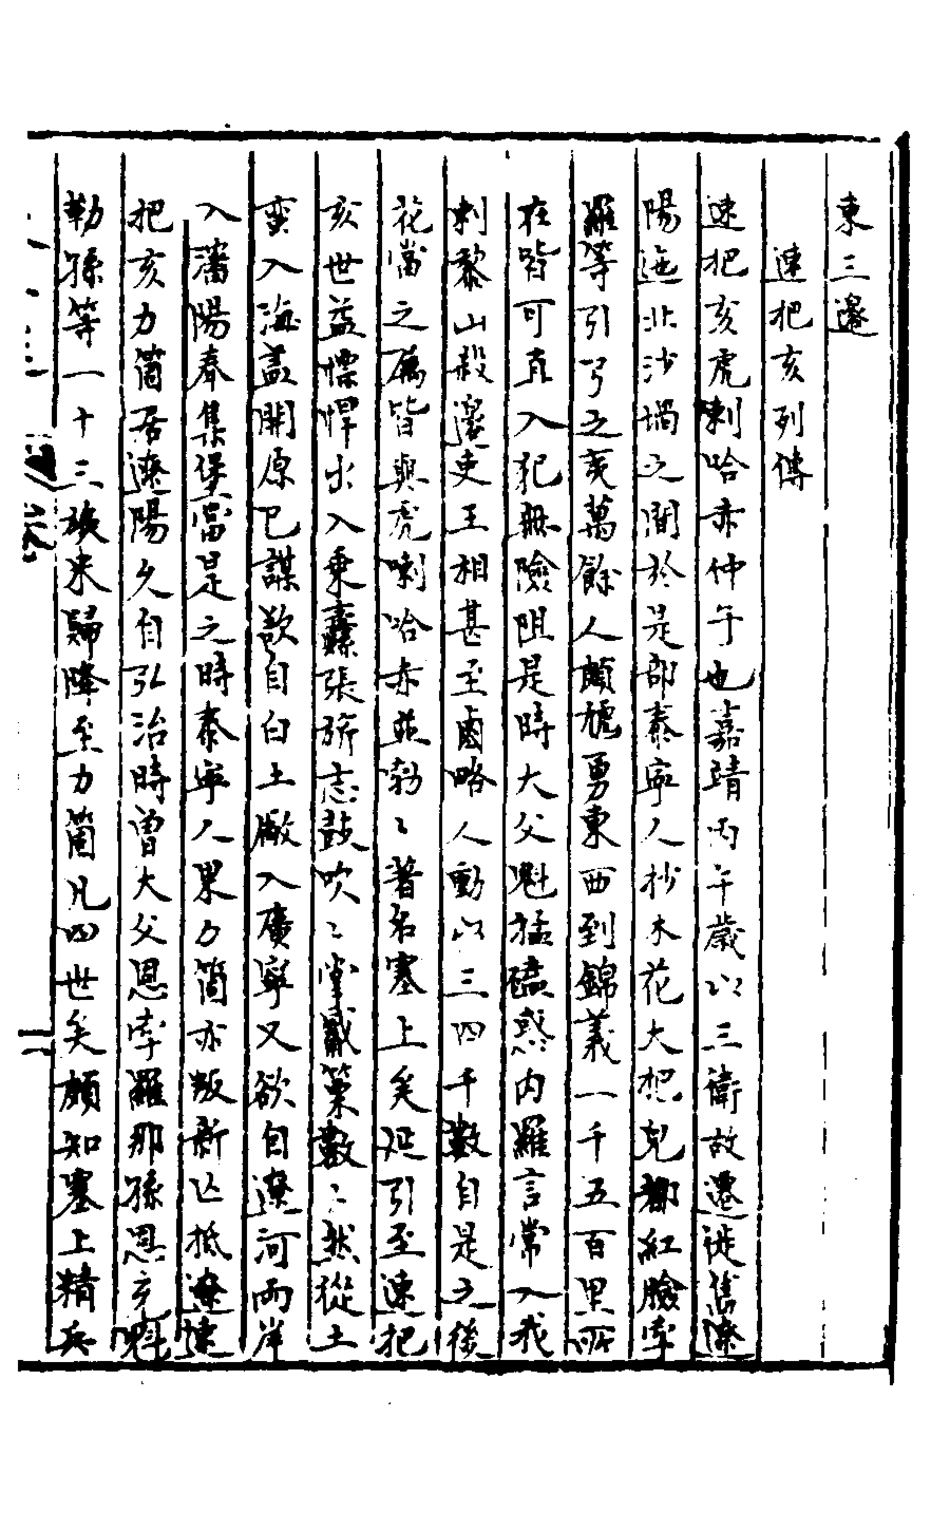 東三邊
速把亥列傳
速把亥虎喇哈赤仲子也嘉靖丙午歲以三衛故遷徙舊遼
陽迤北沙堝之間於是部泰寧人抄木花大把兒都紅臉孛
羅等引弓之夷萬餘人頗虓勇東西到錦義一千五百里所
在皆可直入犯無險阻是時大父魁猛磕惑內羅言常入我
刺黎山殺邊吏王相甚至鹵略人動以三四千數自是之後
花當之属皆與虎喇哈赤並勃〻著名塞上矣延引至速把
亥世益慓悍出入乗纛張旂志鼓吹〻掌戴策數〻然從土
蠻入海盖開原已謀欲自白土厰入廣寧又欲自遼河兩岸
入瀋陽奉集堡當是之時泰寧人果力箇亦叛新亡抵遼速
把亥力箇居遼陽久自弘治時曾大父恩孛羅那孫恩亥魁
勒孫等一十三族来歸降至力箇凡四世矣頗知塞上精兵